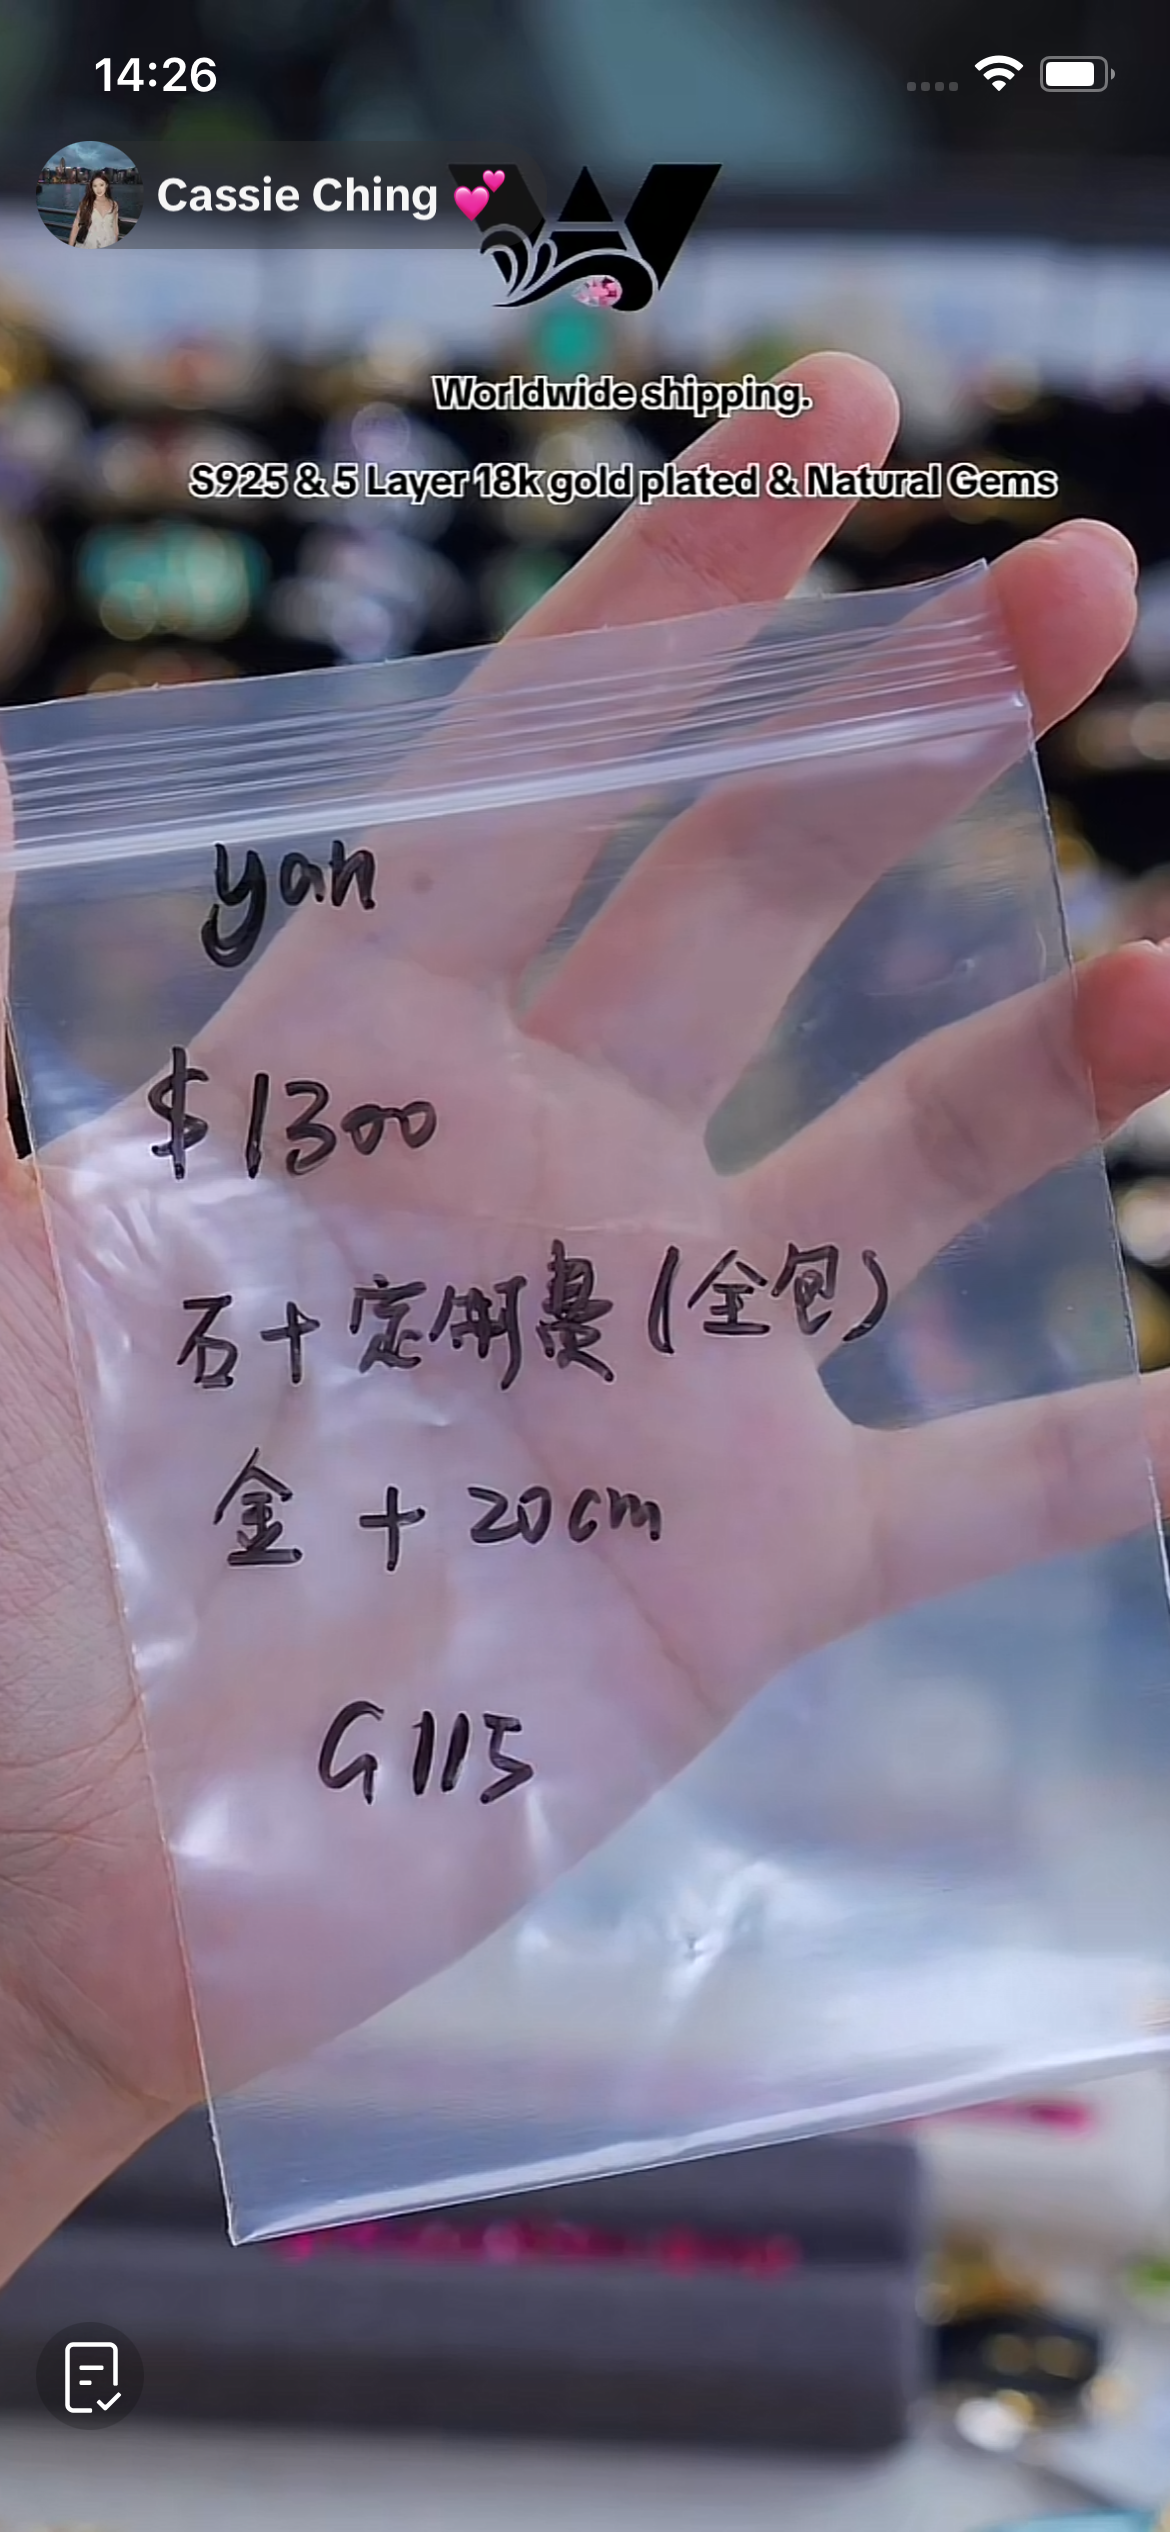 14:26
Cassie Ching 💕
Worldwide shipping.
S925 & 5 Layer 18k gold plated & Natural Gems
yan
$1300
石+定制费(全包)
金 + 20cm
G115